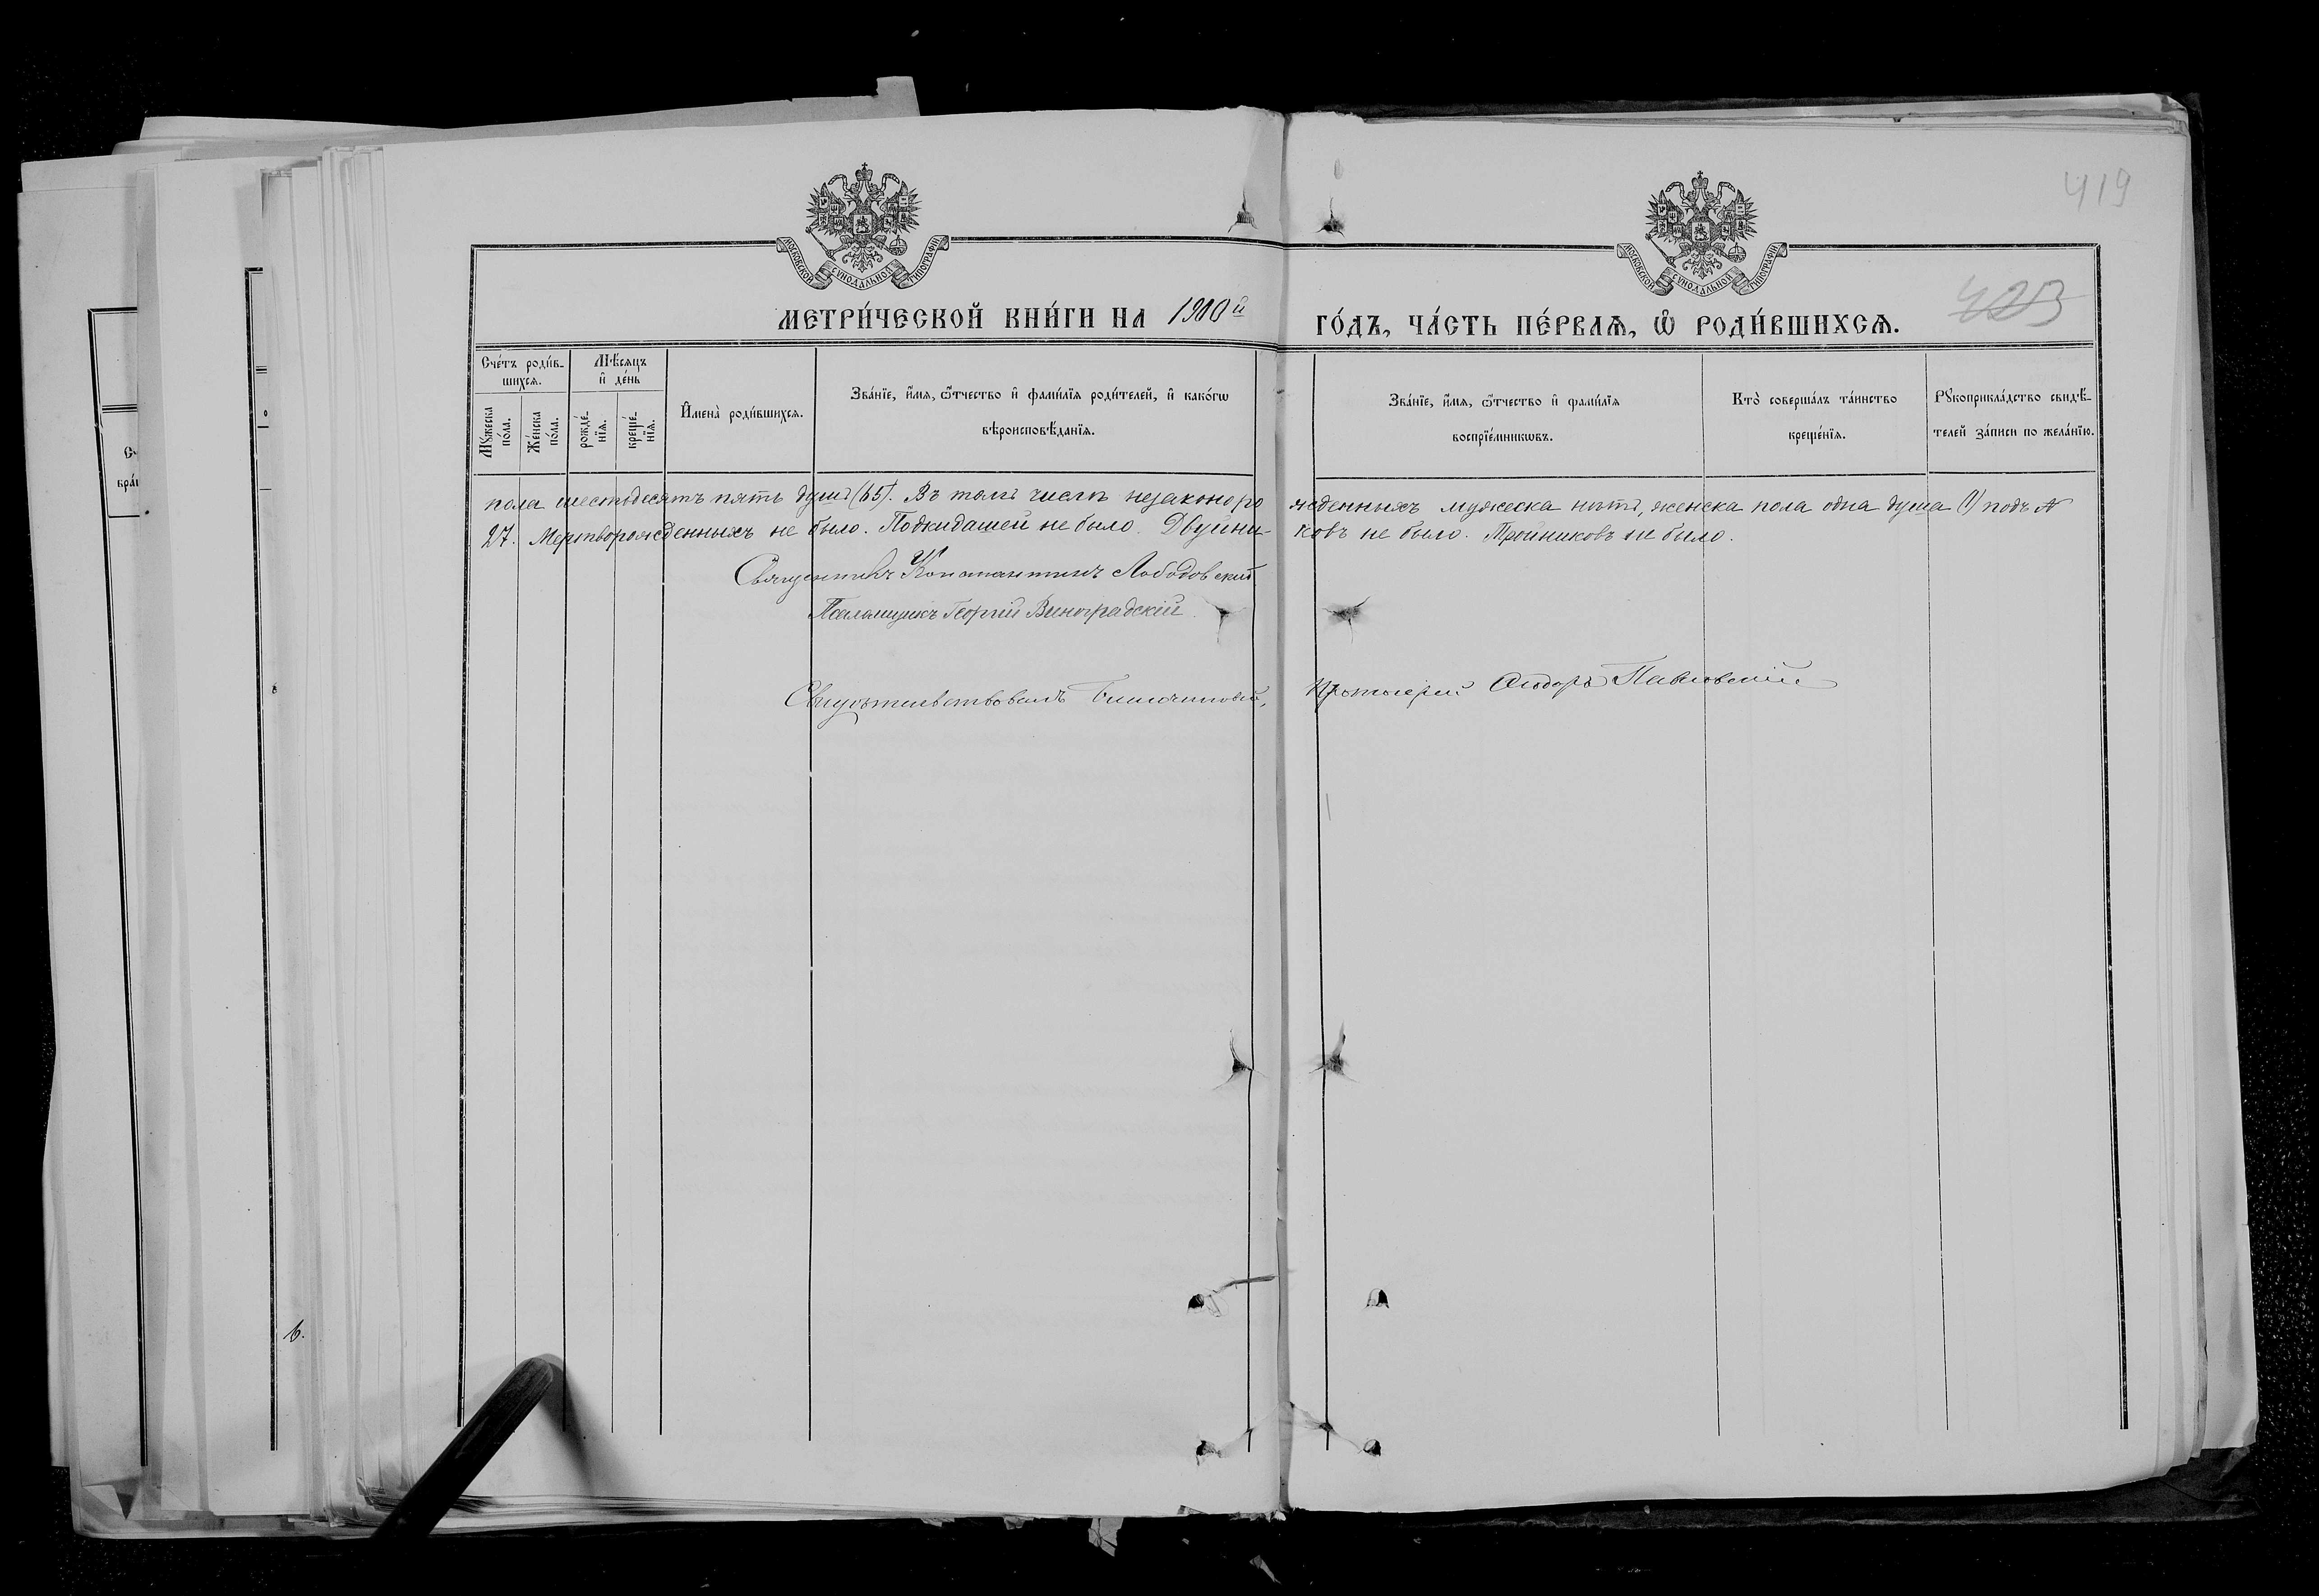 419
МОСКОВСКОЙ СѴНОДАЛЬНОЙ ТИПОГРАФІИ
МОСКОВСКОЙ СѴНОДАЛЬНОЙ ТИПОГРАФІИ
МЕТРИ́ЧЕСКОЙ КНИ́ГИ НА 1900й
ГО́ДЪ, ЧА́СТЬ ПЕ́РВАѦ, Ѡ҆ РОДИ́ВШИХСѦ.
Сче́тъ роди́в-
шихсѧ.
Мꙋ́жеска
по́ла.
Же́нска
по́ла.
Мѣ́сѧцъ
и҆ де́нь
рожде́-
нїѧ.
креще́-
нїѧ.
И҆мена̀ роди́вшихсѧ.
Зва́нїе, и҆́мѧ, ѻ҆́тчество и҆ фами́лїѧ роди́телей, и҆ како́гѡ
вѣроисповѣ́данїѧ.
Зва́нїе, и҆́мѧ, ѻ҆́тчество и҆ фами́лїѧ
воспрїе́мникѡвъ.
Кто̀ соверша́лъ та́инство
креще́нїѧ.
Рꙋкоприкла́дство свидѣ́-
телей за́писи по жела́нїю.
пола шестьдесятъ пять душъ (65). Въ томъ числѣ незаконоро
жденныхъ мужеска нѣтъ, женска пола одна душа (1) подъ №
27. Мертворожденныхъ не было. Подкидашей не было. Двуйни-
ковъ не было. Тройниковъ не было.
Священникъ Константинъ Лободовскій
Псаломщикъ Георгій Виноградскій
Свидѣтельствовалъ Благочинный,
Протоіерей Ѳедоръ Павловскій
6.